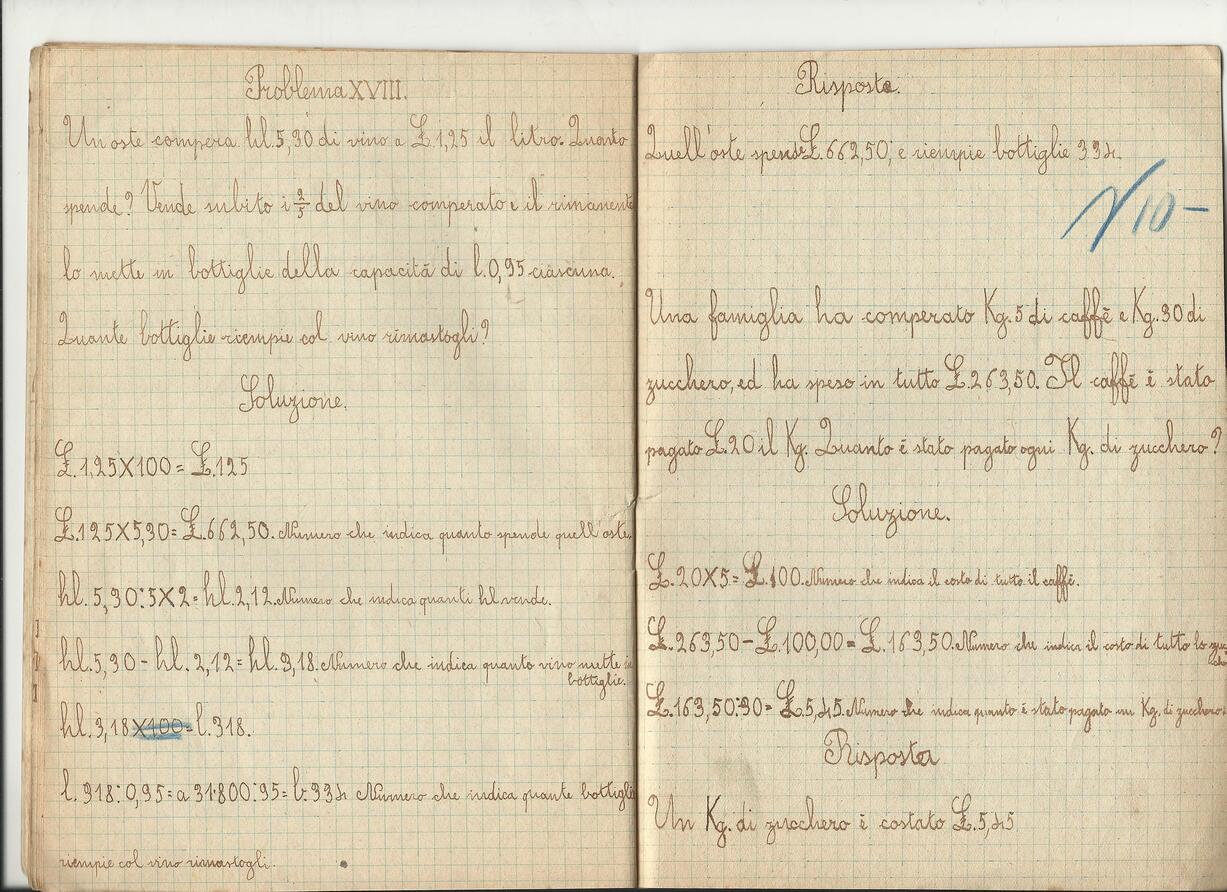 Problema XVIII.
Un oste compera hl. 5,30 di vino a £ 1,25 il litro. Quanto
spende? Vende subito i 2/5 del vino comperato e il rimanente
lo mette in bottiglie della capacità di l. 0,95 ciascuna.
Quante bottiglie riempie col vino rimastogli?
Soluzione.
£. 1,25X100= £.125
£.125X5,30= £.662,50. Numero che indica quanto spende quell'oste.
hl. 5,30:5X2= hl.2,12. Numero che indica quanti hl vende.
hl.5,30 - hl. 2,12= hl.3,18. Numero che indica quanto vino mette in
bottiglie.
hl. 3,18X100= l.318.
l. 318:0,95= a 31.800:95= b. 334 Numero che indica quante bottiglie
riempie col vino rimastogli.
Risposta.
Quell'oste spende £.662,50, e riempie bottiglie 334.
V 10-
Una famiglia ha comperato Kg. 5 di caffè e Kg. 30 di
zucchero, ed ha speso in tutto £.263,50. Il caffè è stato
pagato £.20 il Kg. Quanto è stato pagato ogni Kg. di zucchero?
Soluzione.
£. 20X5= £.100. Numero che indica il costo di tutto il caffè.
£. 263,50-£.100,00= £. 163,50. Numero che indica il costo di tutto lo zucchero
£.163,50:30= £.5,45. Numero che indica quanto è stato pagato un Kg. di zucchero.
Risposta
Un Kg. di zucchero è costato £.5,45